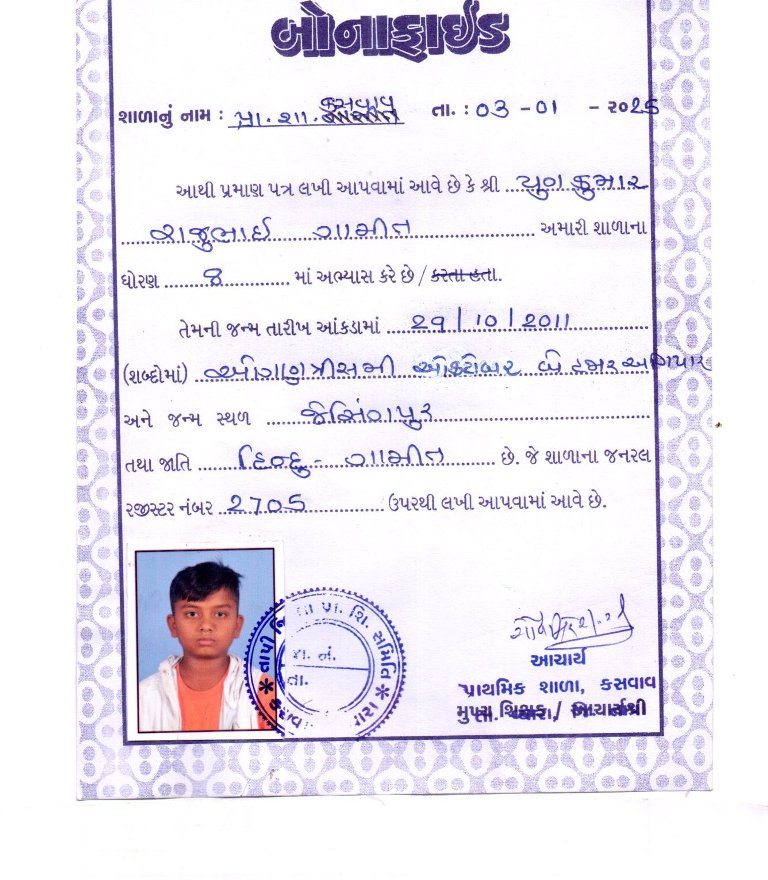 બોનાફાઈડ
શાળાનું નામ : પ્રા. શા. કસવાવ તા. : ૦૩ - ૦૧ - ૨૦૨૬
આથી પ્રમાણ પત્ર લખી આપવામાં આવે છે કે શ્રી યુગકુમાર
રાજુભાઈ ગામીત અમારી શાળાના
ધોરણ ૪ માં અભ્યાસ કરે છે / કરતા હતા.
તેમની જન્મ તારીખ આંકડામાં 29 / 10 / 2011
(શબ્દોમાં) ઓગણત્રીસમી ઓક્ટોબર બે હજાર અગિયાર
અને જન્મ સ્થળ જેસિંગપુર
તથા જાતિ હિન્દુ - ગામીત છે. જે શાળાના જનરલ
રજીસ્ટર નંબર 2705 ઉપરથી લખી આપવામાં આવે છે.
પ્રા. શિ. સમિતિ
તાપી
રા. નં.
તા.
આચાર્ય
પ્રાથમિક શાળા, કસવાવ